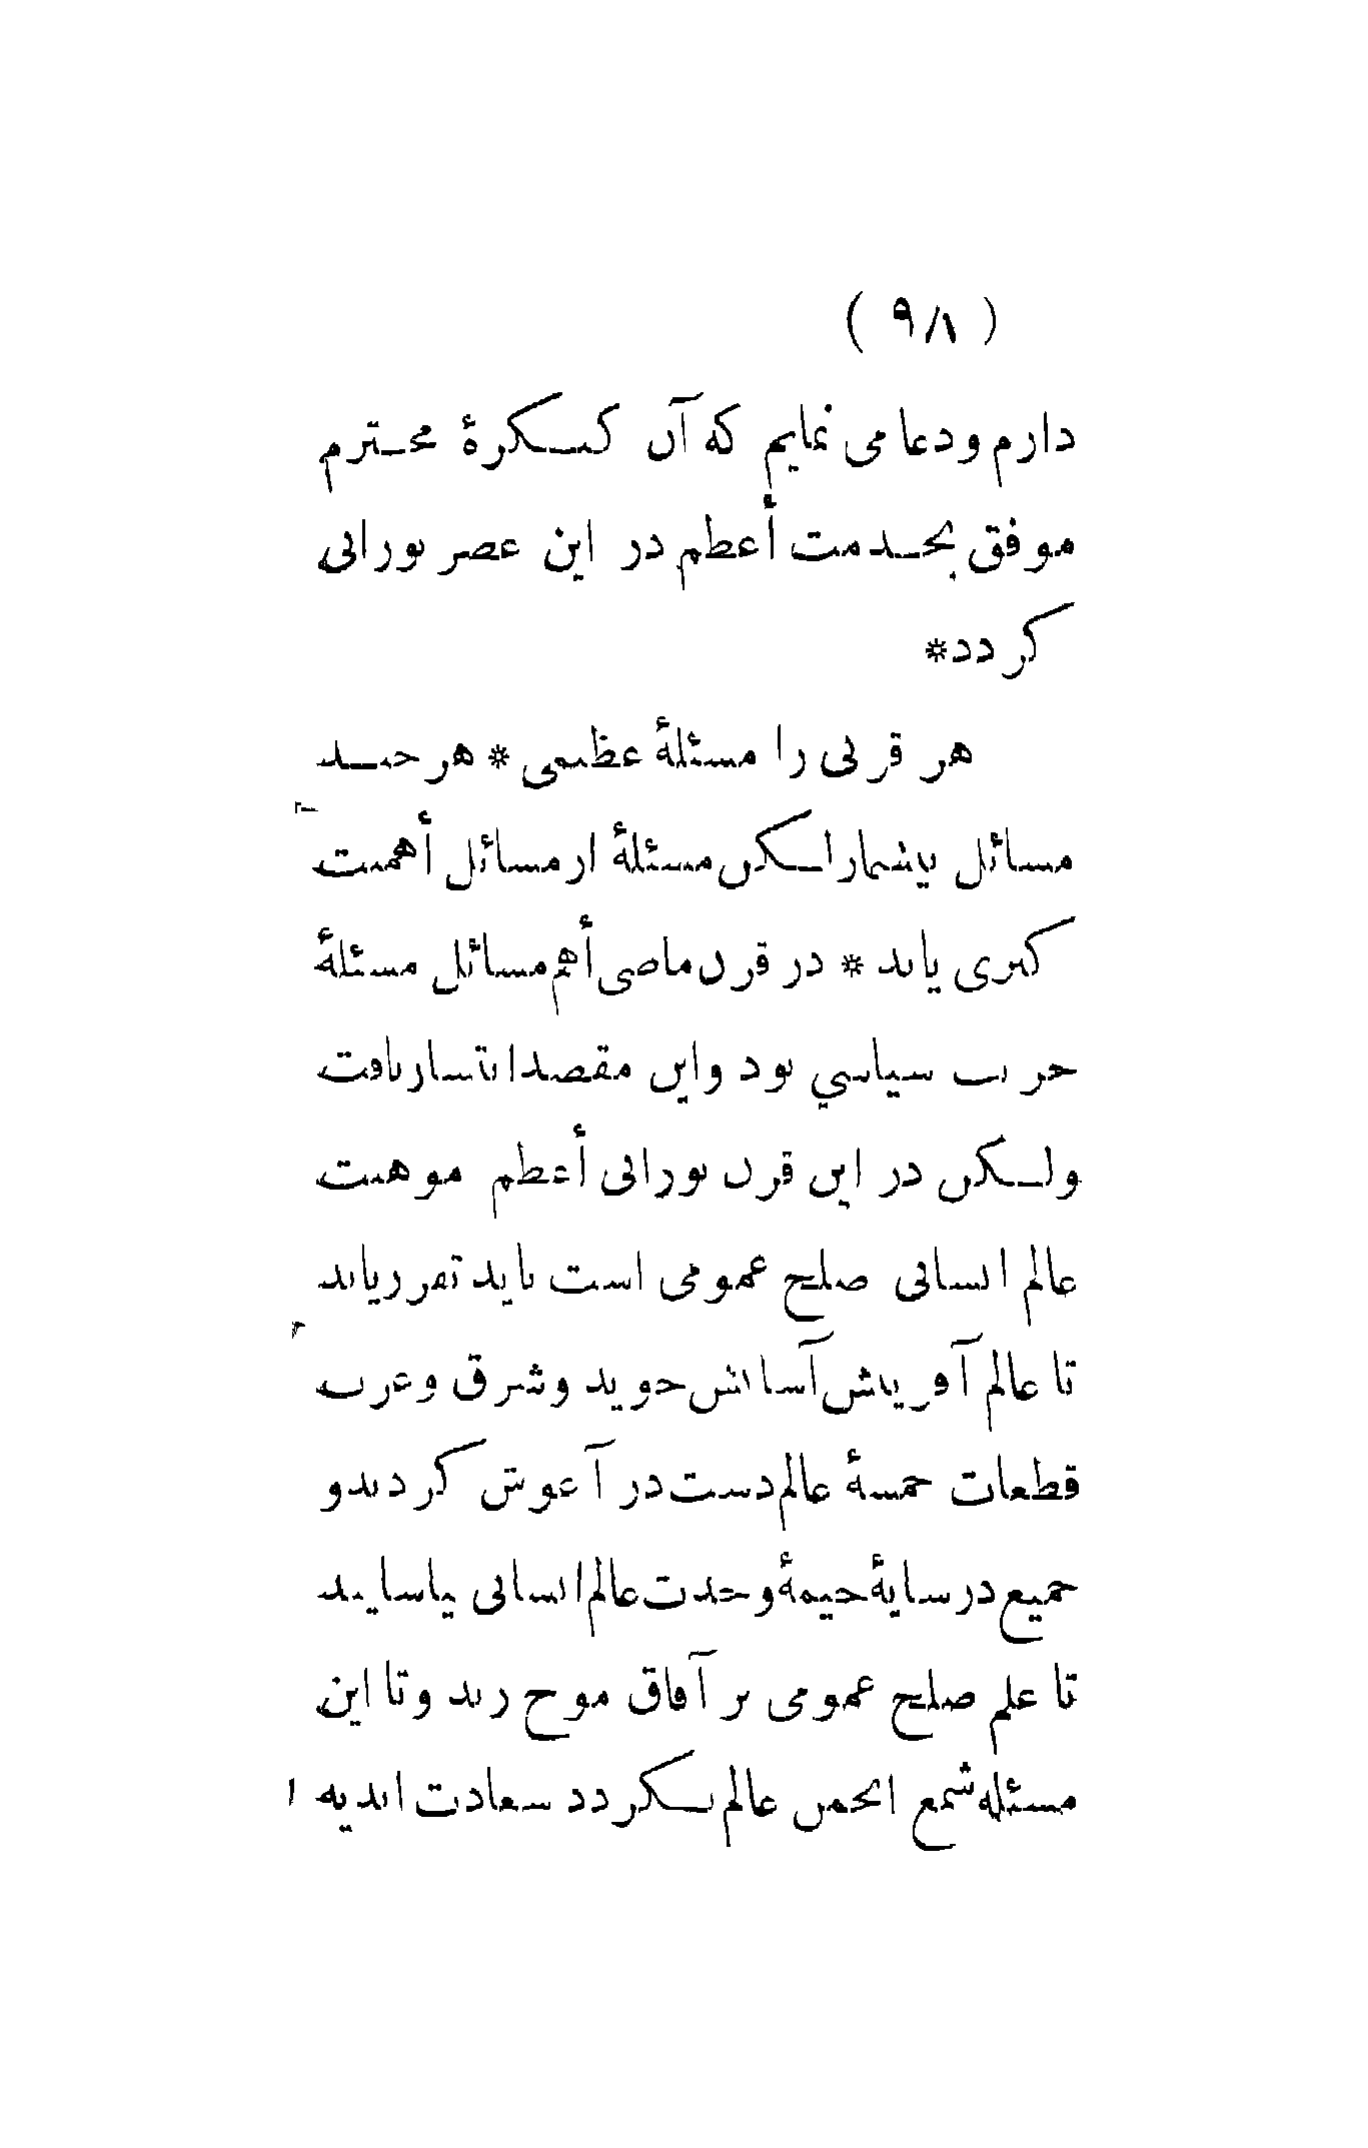 ( ٩٨ )
دارم ودعا می نمایم که آن کنگرۀ محترم
موفق بخدمت أعظم در این عصر نورانی
گردد*
هر قرنی را مسئلۀ عظیمی * هر چند
مسائل بیشمار لکن مسئلۀ از مسائل أهمیت
کبری یابد * در قرن ماضی أهم مسائل مسئلۀ
حریت سیاسي بود واین مقصد انتشار یافت
ولکن در این قرن نورانی أعظم موهبت
عالم انسانی صلح عمومی است باید تقرر یابد
تا عالم آفرینش آسایش جوید وشرق وغرب
قطعات خمسۀ عالم دست در آغوش گردند و
جمیع در سایۀ خیمۀ وحدت عالم انسانی بیاسایند
تا علم صلح عمومی بر آفاق موج زند وتا این
مسئله شمع انجمن عالم نگردد سعادت ابدیه